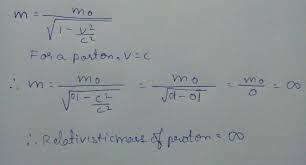 m = m₀ / √(1 - v²/c²)
For a parton, v = c
∴ m = m₀ / √(1 - c²/c²) = m₀ / √(1 - 1) = m₀ / 0 = ∞
∴ Relativistic mass of proton = ∞